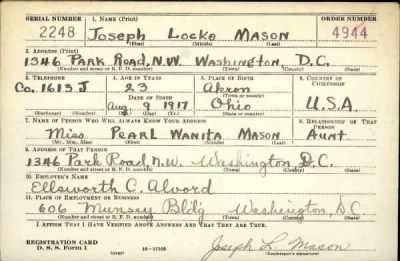 SERIAL NUMBER 1. NAME (Print) ORDER NUMBER
2248 Joseph Locke MASON 4944
(First) (Middle) (Last)
2. ADDRESS (Print)
1346 Park Road, N.W. Washington D.C.
(Number and street or R. F. D. number) (Town) (County) (State)
3. TELEPHONE 4. AGE IN YEARS 5. PLACE OF BIRTH 6. COUNTRY OF CITIZENSHIP
Co. 1613 J 23 Akron
DATE OF BIRTH (Town or county)
Aug 9 1917 Ohio U.S.A
(Exchange) (Number) (Mo.) (Day) (Yr.) (State or country)
7. NAME OF PERSON WHO WILL ALWAYS KNOW YOUR ADDRESS 8. RELATIONSHIP OF THAT PERSON
Miss Pearl Wanita Mason Aunt
(Mr., Mrs., Miss) (First) (Middle) (Last)
9. ADDRESS OF THAT PERSON
1346 Park Road, n.w. Washington D.C.
(Number and street or R. F. D. number) (Town) (County) (State)
10. EMPLOYER'S NAME
Ellsworth C. Alvord
11. PLACE OF EMPLOYMENT OR BUSINESS
606 Munsey Bldg Washington, D.C
(Number and street or R. F. D. number) (Town) (County) (State)
I AFFIRM THAT I HAVE VERIFIED ABOVE ANSWERS AND THAT THEY ARE TRUE.
REGISTRATION CARD
D. S. S. Form 1 (over) Joseph L. Mason
(Registrant's signature)